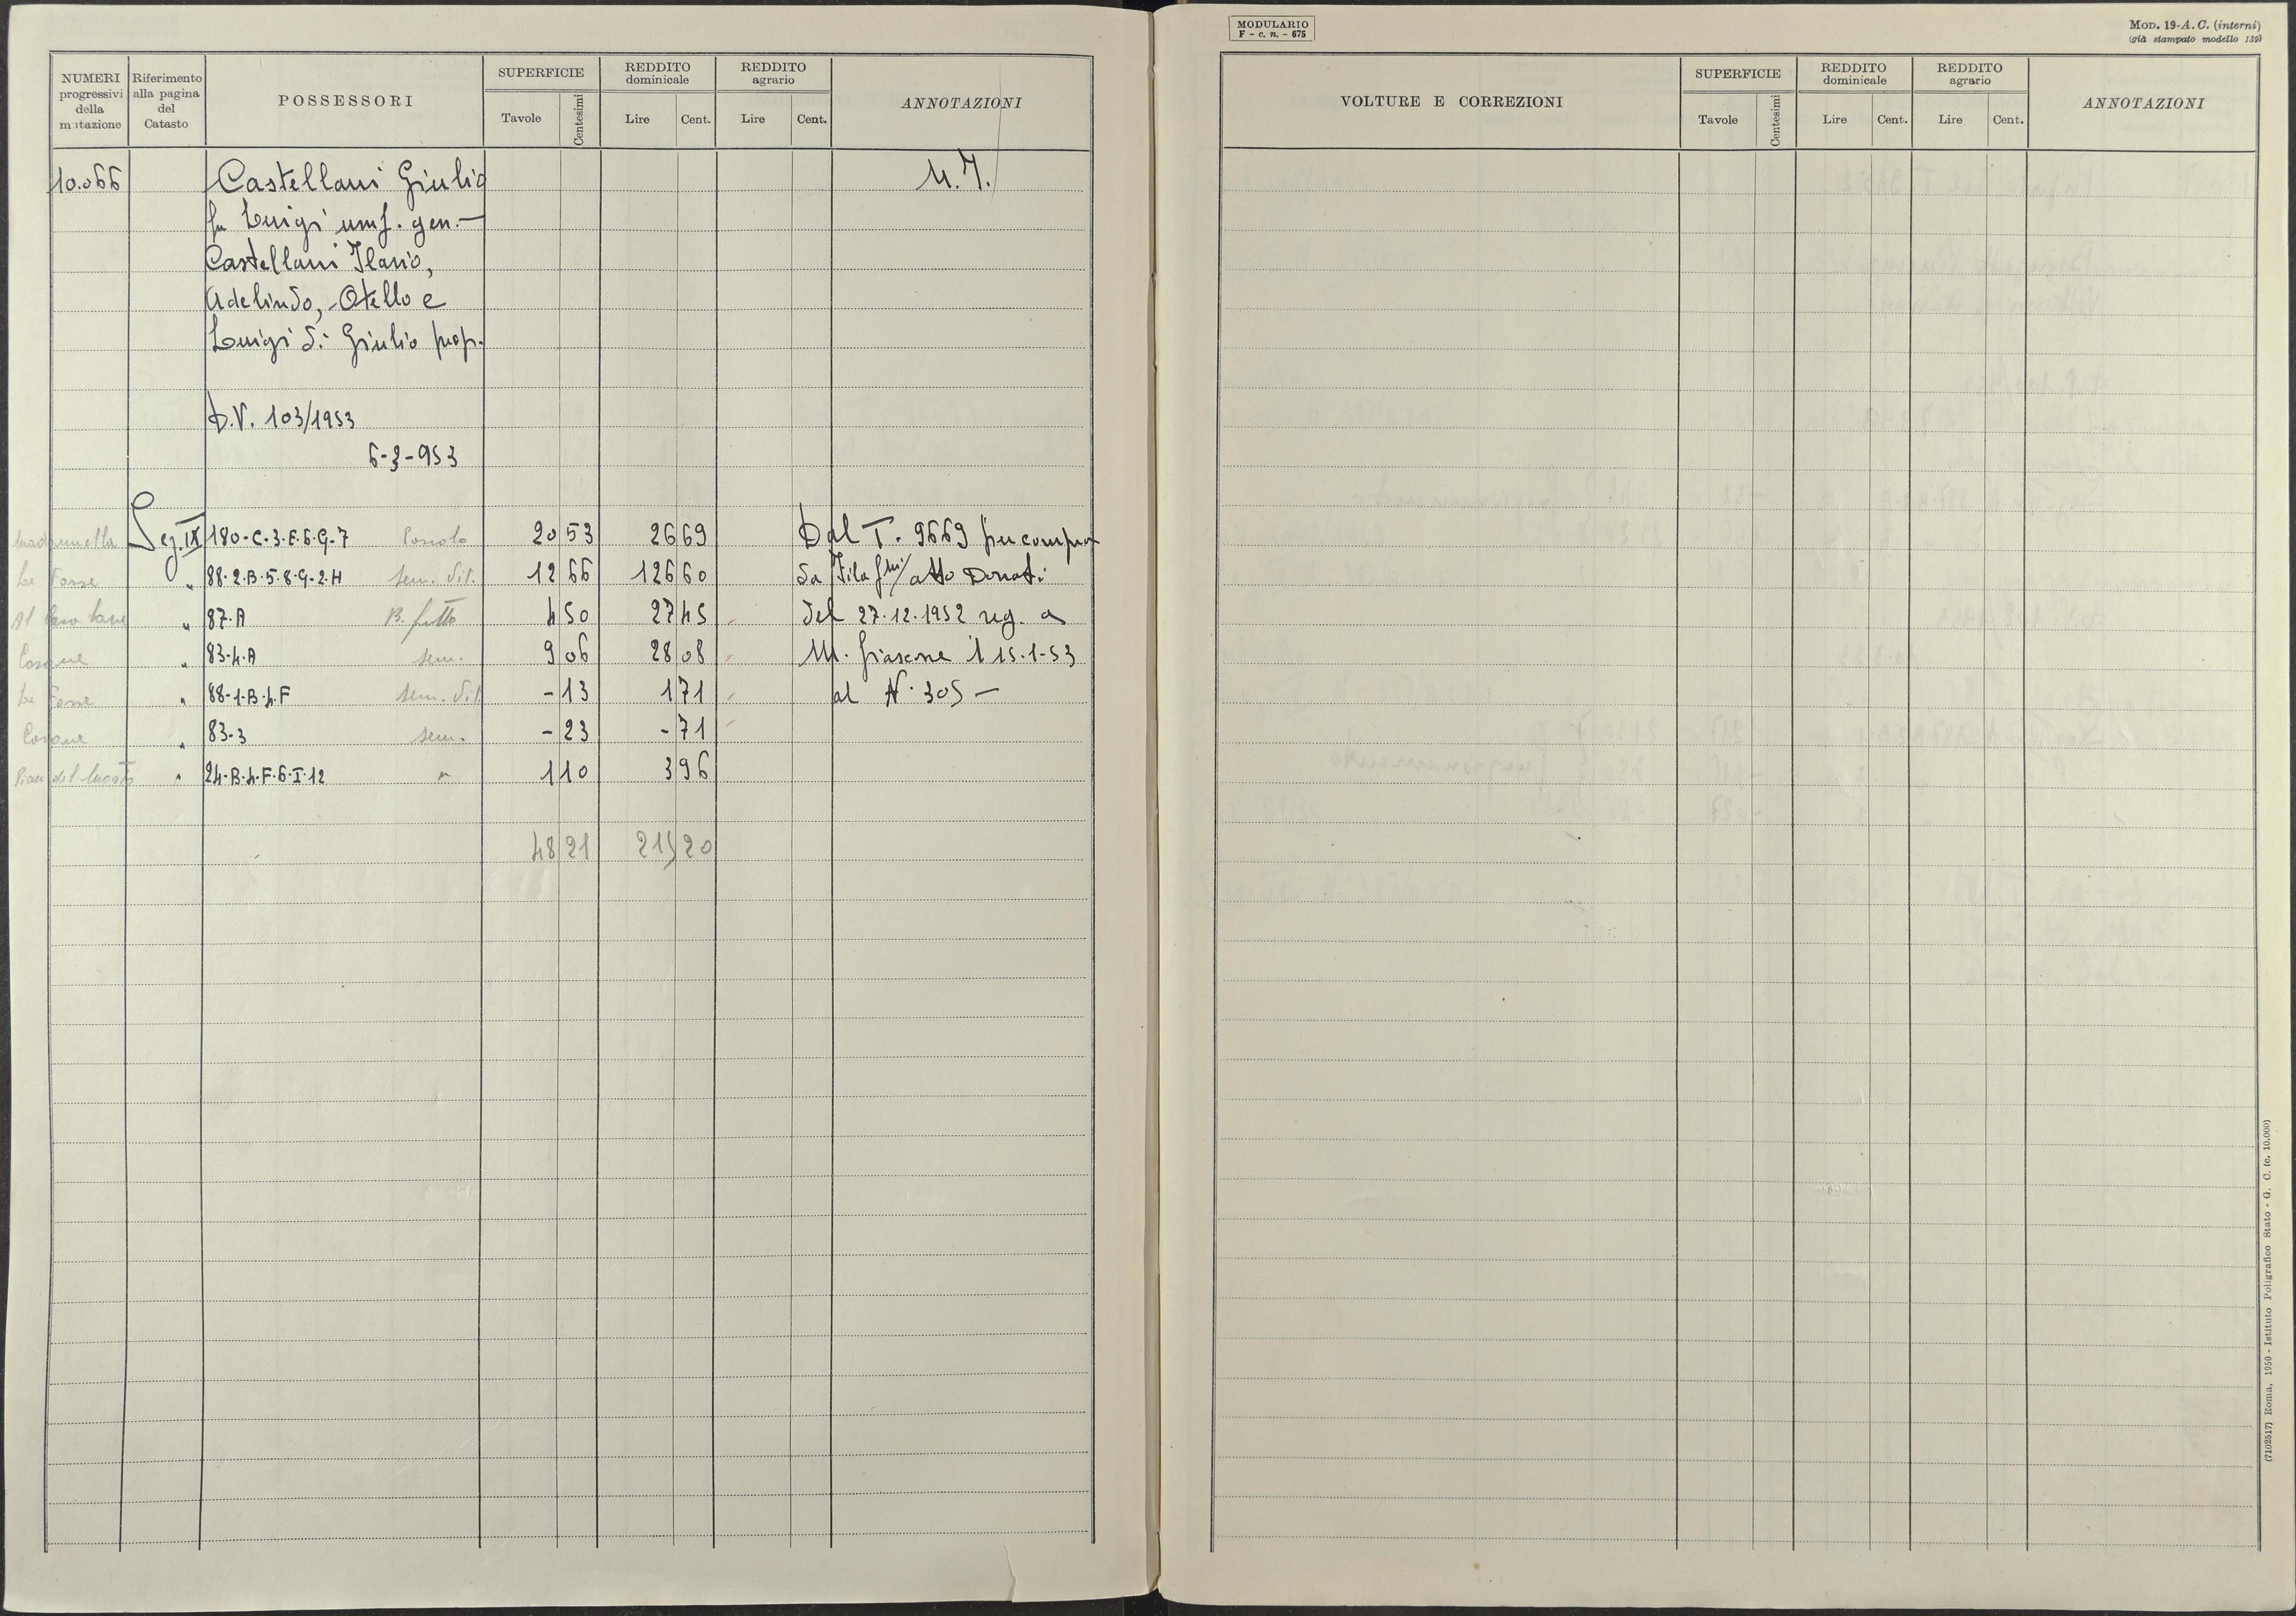 NUMERI progressivi della mutazione | Riferimento alla pagina del Catasto | POSSESSORI | SUPERFICIE Tavole Centesimi | REDDITO dominicale Lire Cent. | REDDITO agrario Lire Cent. | ANNOTAZIONI
10.066 Castellani Giulio
fu Luigi usuf. gen. —
Castellani Ilario,
Adelindo, Otello e
Luigi di Giulio prop.
D.V. 103/1953
6-3-953
Sez. IX 180-C-3-E-6-G-7 Pascolo 20 53 26 69 Dal T. 9669 per compra
Le Fosse " 88-2-B-5-8-G-2-H sem. vit. 12 66 126 60 da atto Donati
" 87-A B. frutto 4 50 27 45 del 27.12.1952 reg. a
" 83-4-A sem. 9 06 28 08 M. Fiascone il 15-1-53
Le Fosse " 88-1-B-4-F sem. vit. - 13 1 71 al N. 305 —
" 83-3 sem. - 23 - 71
" 24-B-4-F-6-I-12 " 1 10 3 96
48 21 215 20
MODULARIO
F - c. n. - 675
MOD. 19-A. C. (interni)
(già stampato modello 139)
VOLTURE E CORREZIONI | SUPERFICIE Tavole Centesimi | REDDITO dominicale Lire Cent. | REDDITO agrario Lire Cent. | ANNOTAZIONI
(7102517) Roma, 1950 - Istituto Poligrafico Stato - G. C. (c. 10.000)